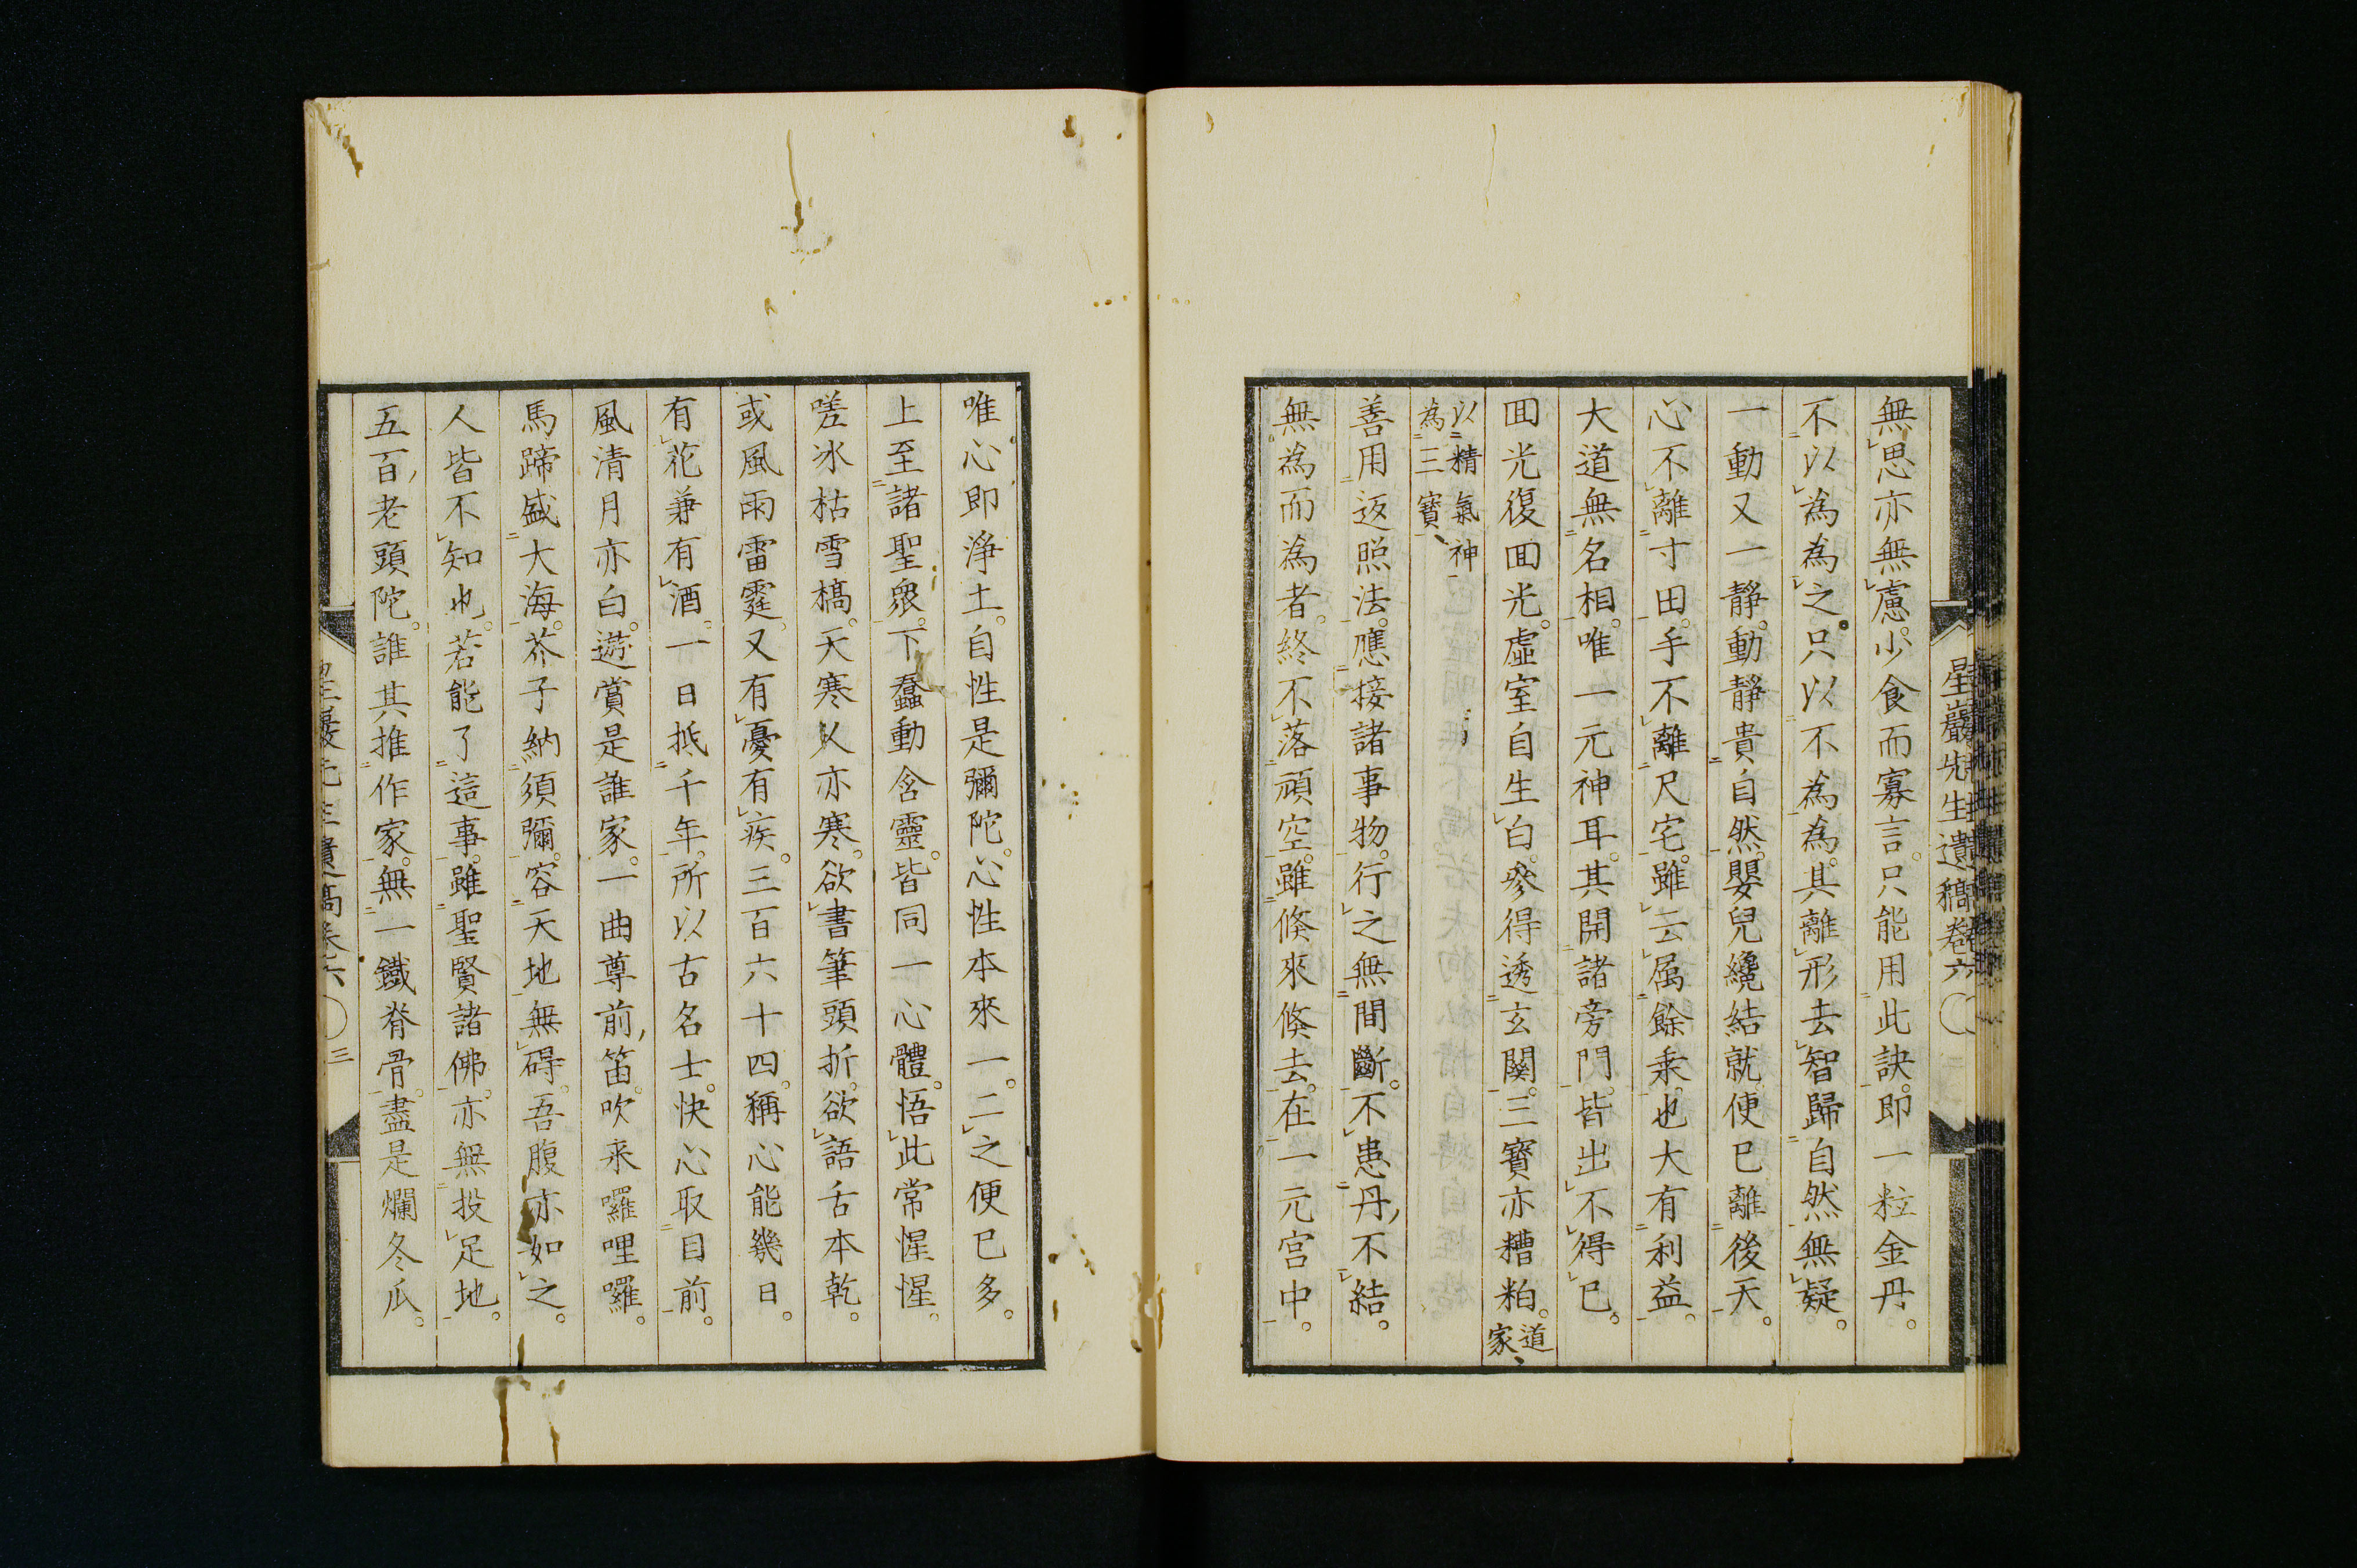 星巖先生遺稿卷六
無思亦無慮。少食而寡言。只能用此訣。即一粒金丹。
不以為為之。只以不為為。其離形去智歸自然無疑。
一動又一靜。動靜貴自然。嬰兒纔結就便已離後天。
心不離寸田。手不離尺宅。雖云属餘乘。也大有利益。
大道無名相。唯一元神耳。其開諸旁門。皆出不得已。
囬光復囬光。虛室自生白。參得透玄關。三寶亦糟粕。道家
以精氣神
為三寶
善用返照法。應接諸事物。行之無間斷。不患丹不結。
無為而為者。終不落頑空。雖倏來倏去。在一元宮中。
唯心即淨土。自性是彌陀。心性本來一。二之便已多。
上至諸聖衆。下蠢動含靈。皆同一心體。悟此常惺惺。
嗟冰枯雪槁。天寒人亦寒。欲書筆頭折。欲語舌本乾。
或風雨雷霆。又有憂有疾。三百六十四。稱心能幾日。
有花兼有酒。一日抵千年。所以古名士。快心取目前。
風清月亦白。遊賞是誰家。一曲尊前笛。吹来囉哩囉。
馬蹄盛大海。芥子納須彌。容天地無碍。吾腹亦如之。
人皆不知也。若能了這事。雖聖賢諸佛。亦無投足地。
五百老頭陀。誰其推作家。無一鐵脊骨。盡是爛冬瓜。
星巖先生遺稿卷六 三